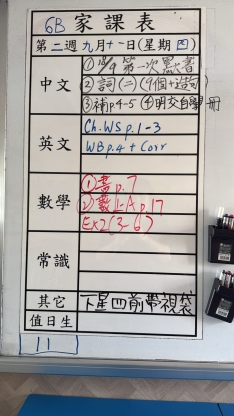 6B 家課表
第二週九月十一日(星期四)
中文
①18/9 第一次默書
②詞(二)(9個+造句)
③補p4-5 ④明交自學冊
英文
Ch.WS p.1-3
WB p.4 + Corr
數學
①書p.7
②數止A p.17
Ex2(3-6)
常識
其它
下星四前帶視袋
值日生
11